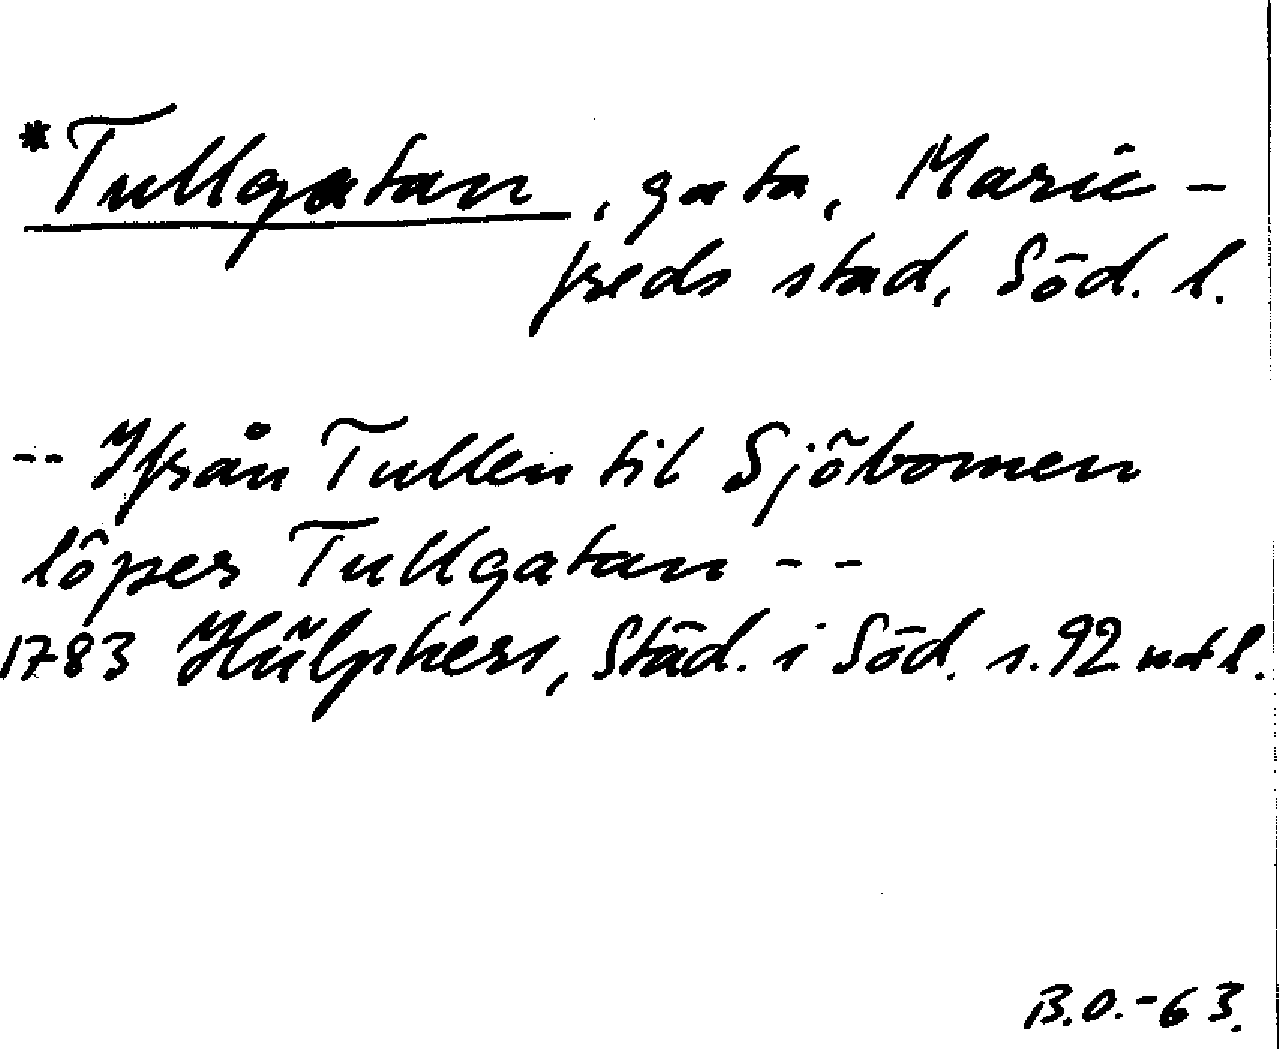 *Tullgatan, gata, Marie-
freds stad, Söd. l.
-- Ifrån Tullen til Sjöbomen
löper Tullgatan --
1783 Hülphers, Städ. i Söd. s. 92 notl.
B.O.-63.